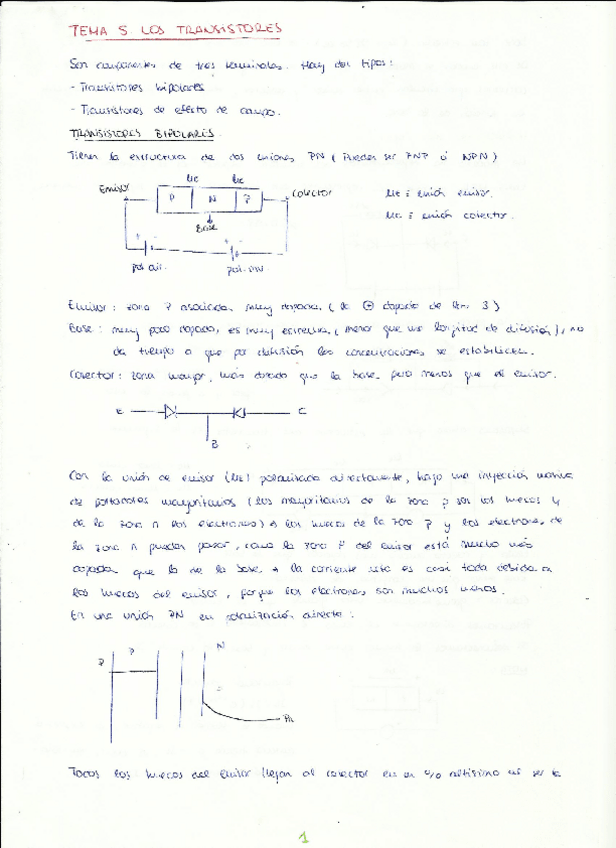 TEMA 5. LOS TRANSISTORES
Son componentes de tres terminales. Hay dos tipos:
- Transistores bipolares
- Transistores de efecto de campo.
TRANSISTORES BIPOLARES.
Tienen la estructura de dos uniones PN (Pueden ser PNP ó NPN)
Emisor UE UC Colector
P N P
Base
UE ≡ unión emisor.
UC ≡ unión colector.
+ - + -
pol. dir. pol. inv.
Emisor: zona P asociada, muy dopada. (la ⊕ dopada de las 3)
Base: muy poco dopada, es muy estrecha (menor que una longitud de difusión), no
da tiempo a que por difusión las concentraciones se estabilicen.
Colector: zona mayor, más dopado que la base, pero menos que el emisor.
E C
B
Con la unión de emisor (UE) polarizada directamente, hay una inyección masiva
de portadores mayoritarios (los mayoritarios de la zona p son los huecos y
de la zona n los electrones) los huecos de la zona P y los electrones de
la zona n pueden pasar, como la zona P del emisor está mucho más
dopada que la de la base → la corriente es casi toda debida a
los huecos del emisor, porque los electrones son muchos menos.
En una unión PN en polarización directa:
P P N
Pn
Todos los huecos del emisor llegan al colector en un % altísimo al ser la
1